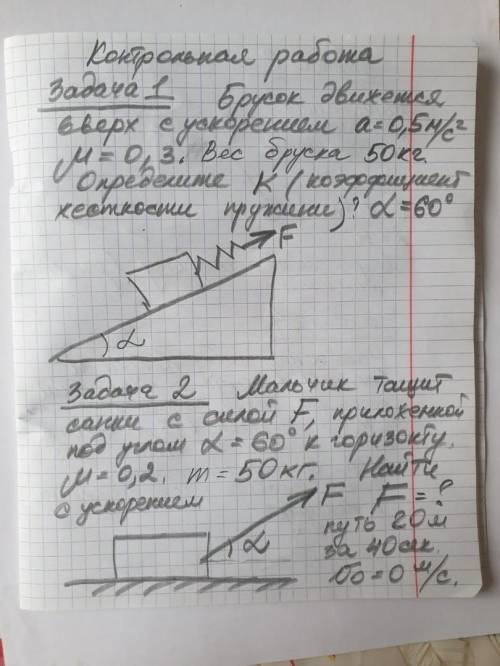 Контрольная работа
Задача 1 Брусок движется
вверх с ускорением a=0,5м/с²
μ=0,3. Вес бруска 50кг.
Определите К (коэффициент
жесткости пружини)? α=60°
F
α
Задача 2 Мальчик тащит
санки с силой F, приложенной
под углом α=60° к горизонту.
μ=0,2. m=50кг. Найти
с ускорением F F=?
α путь 20м
за 40сек.
υ₀=0 м/с.